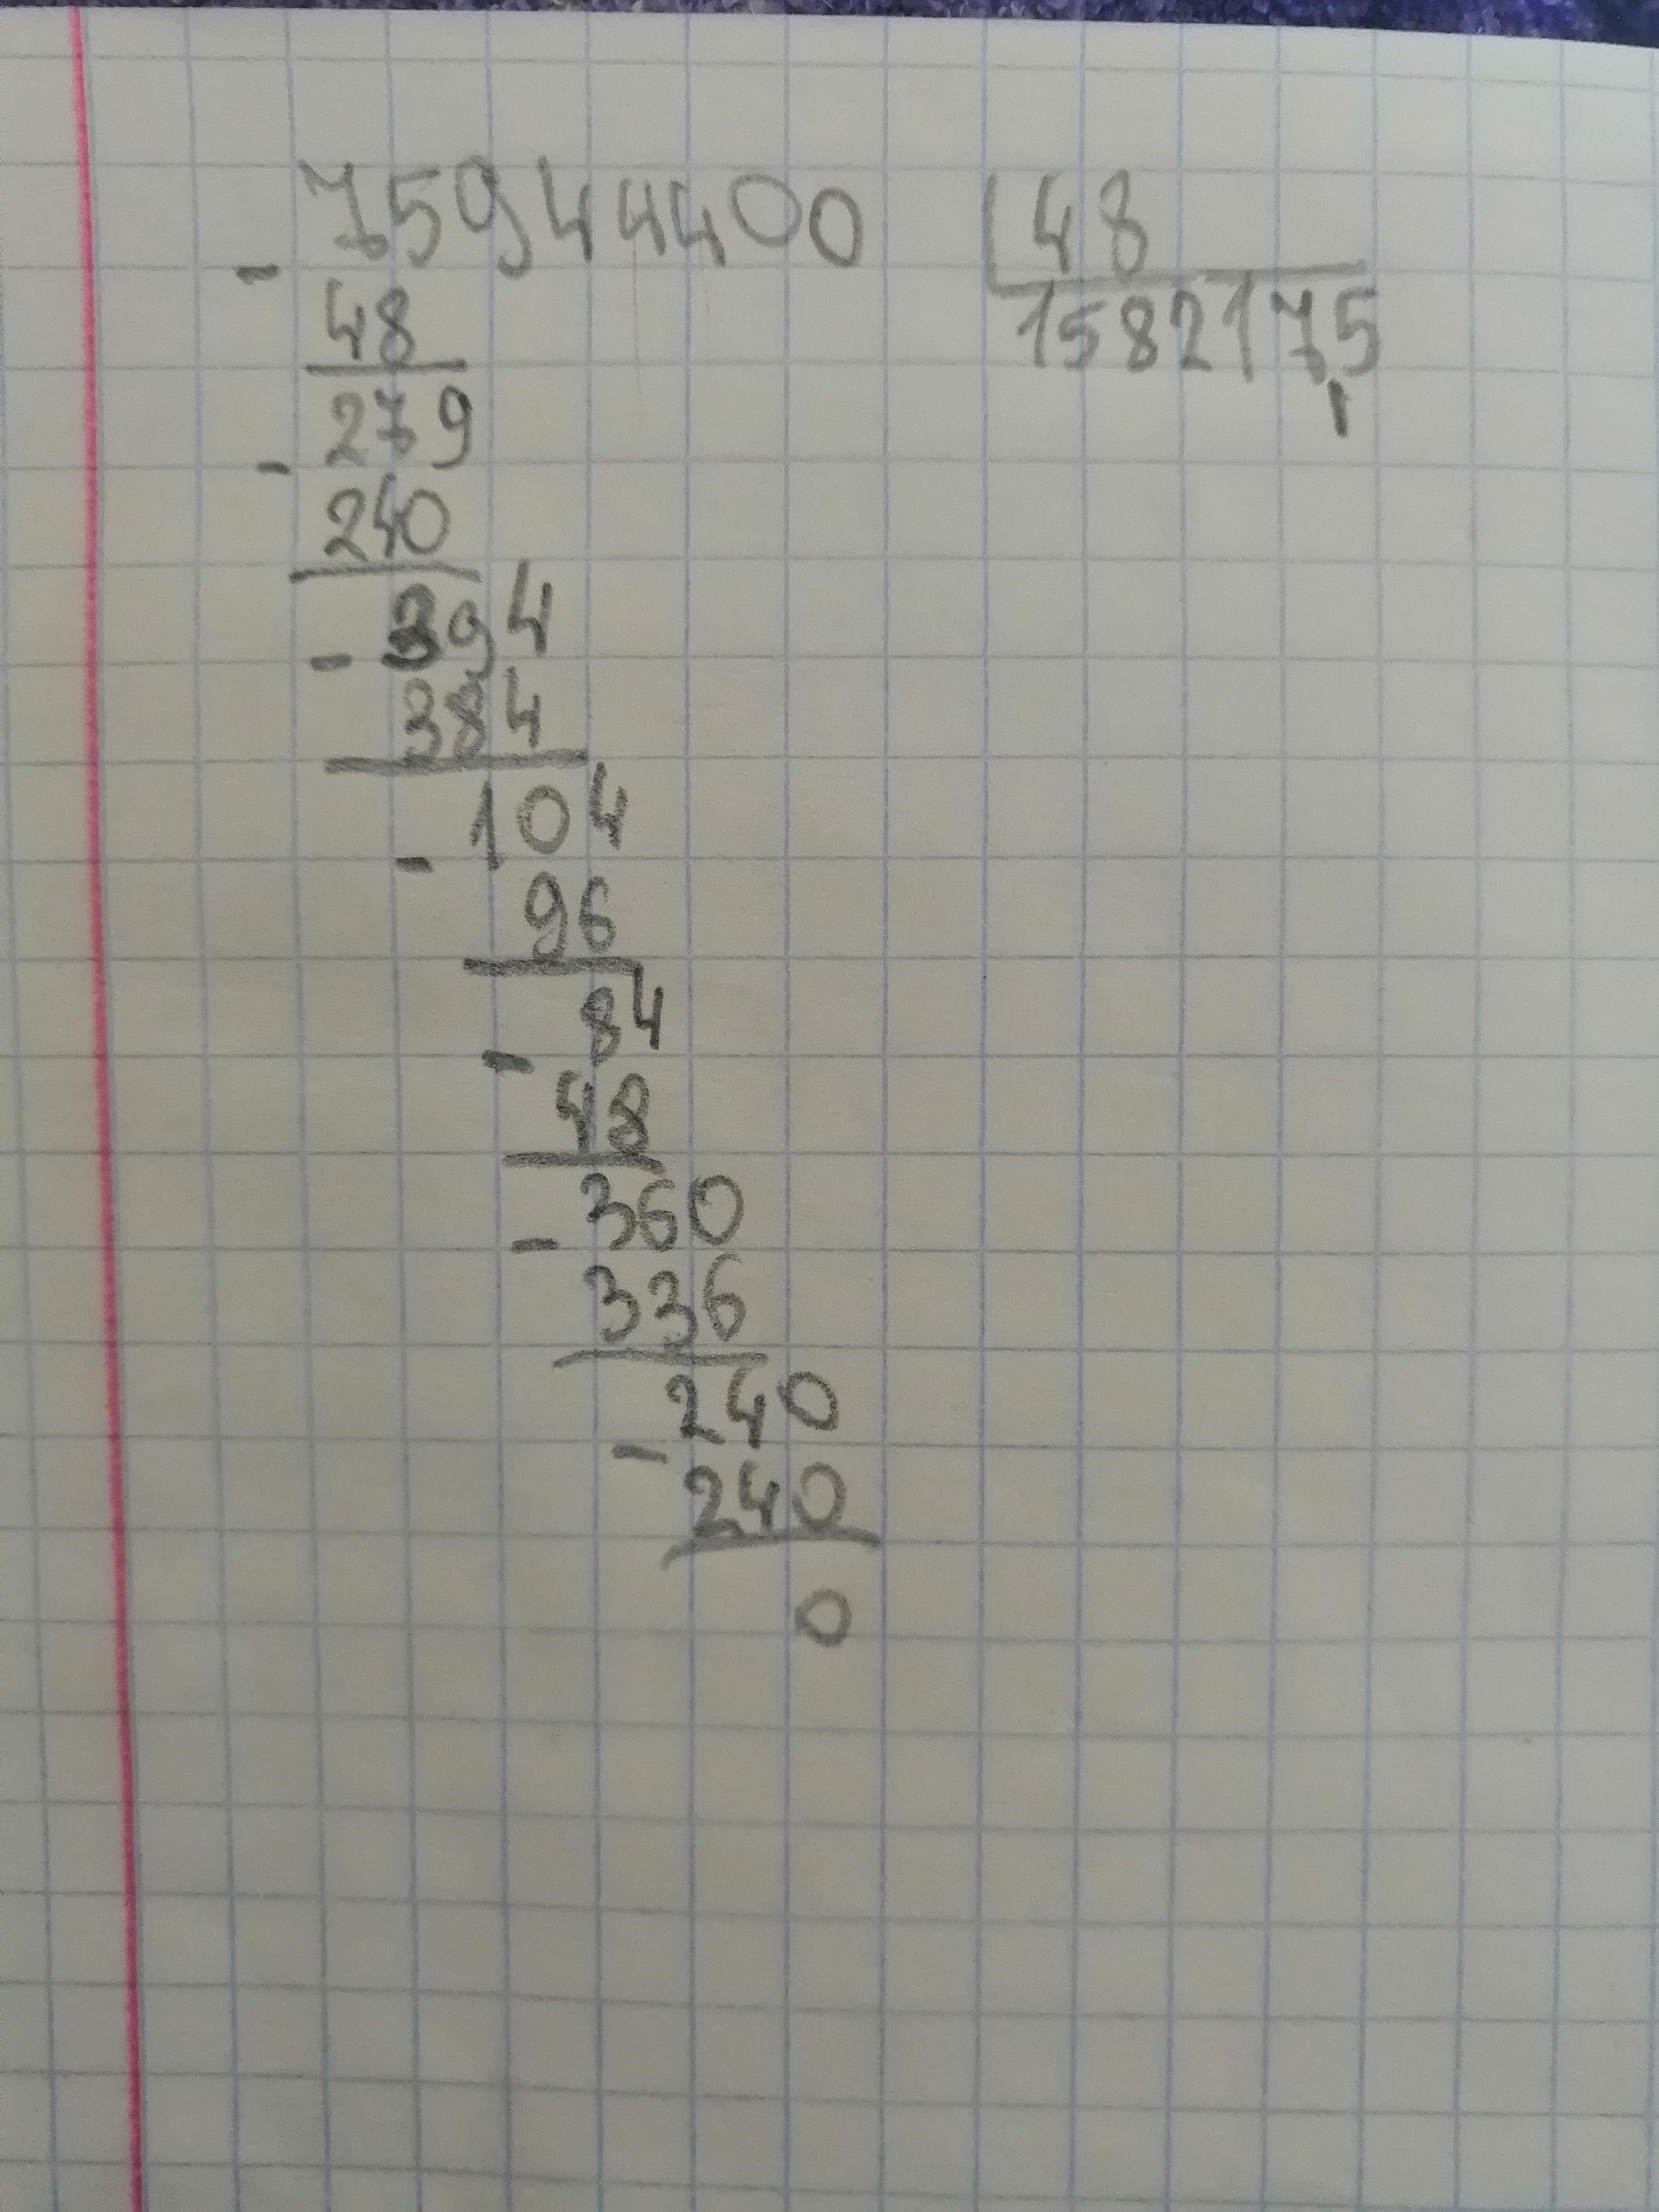 75944400 48
- 48 1582175
279
- 240
- 394
384
- 104
96
- 84
48
- 360
336
- 240
240
0